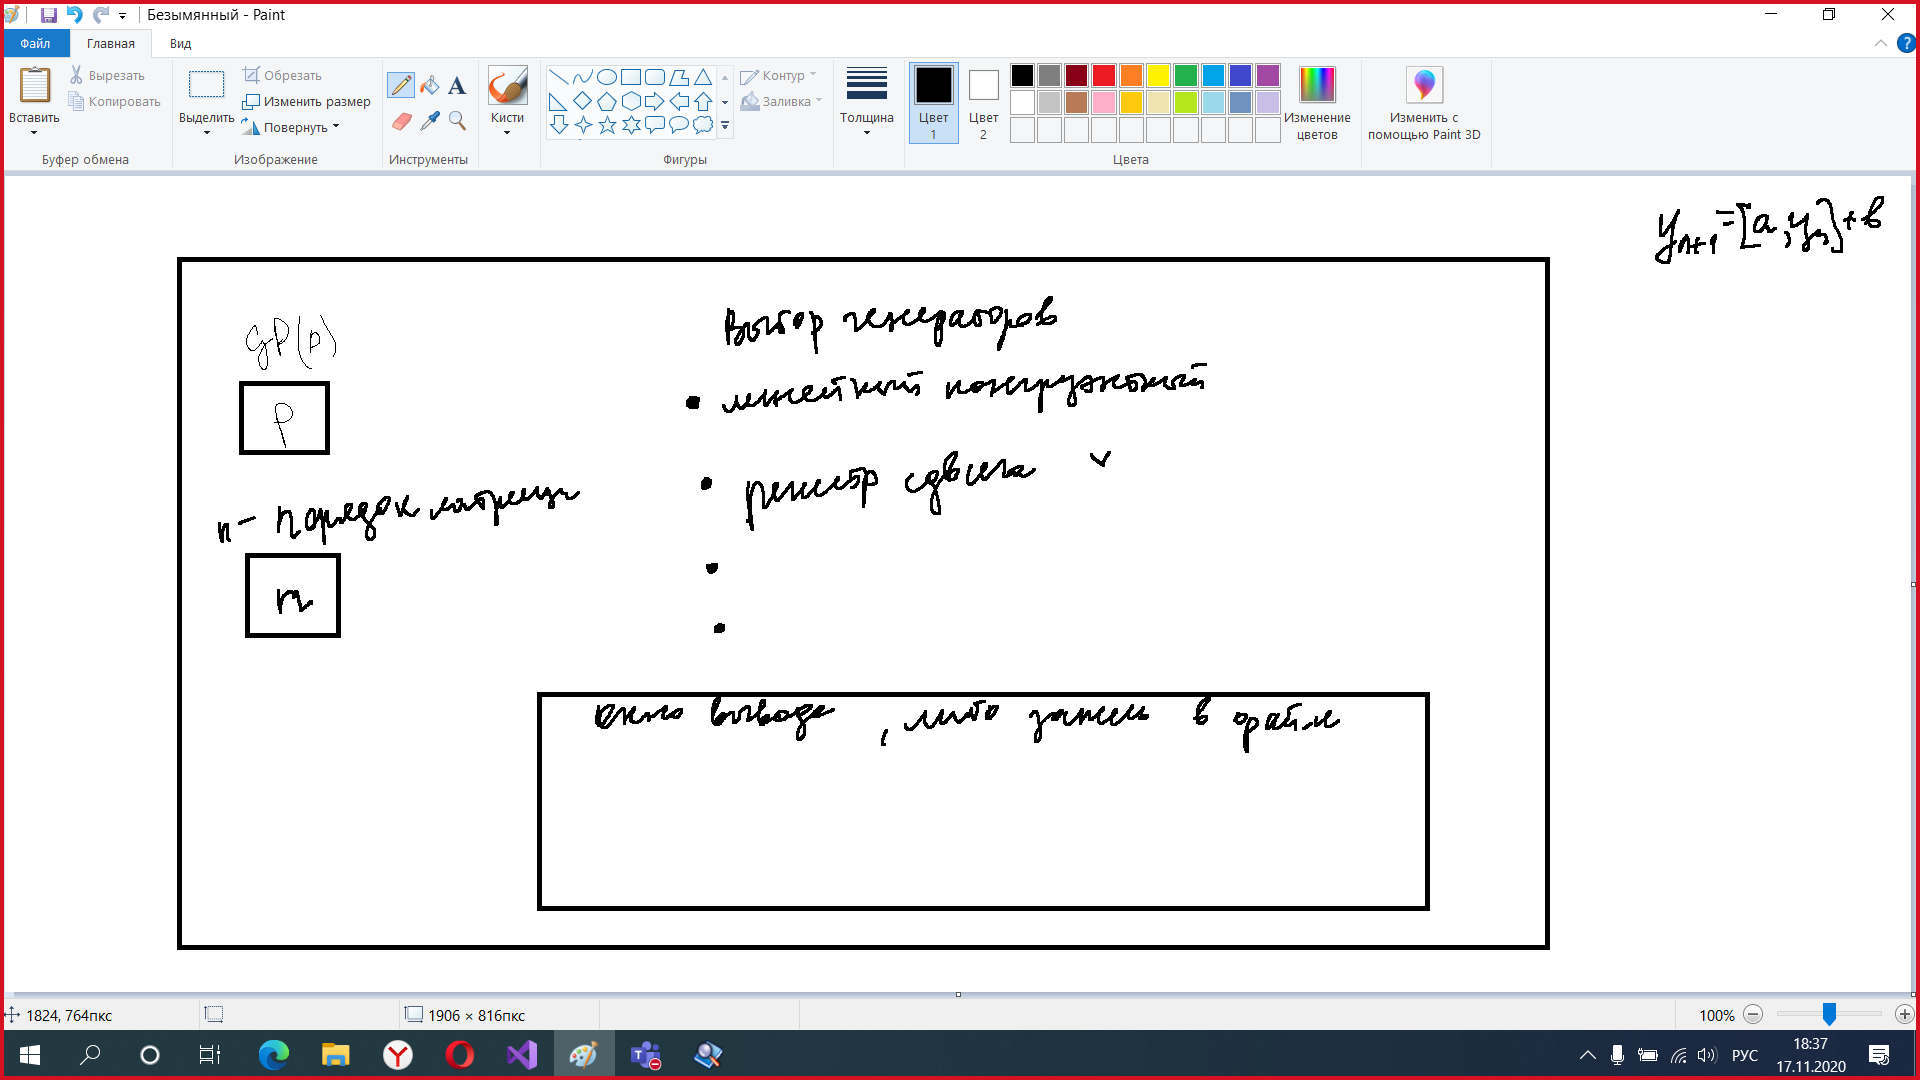 Безымянный - Paint
Файл Главная Вид
Вставить
Вырезать
Копировать
Буфер обмена
Выделить
Обрезать
Изменить размер
Повернуть
Изображение
A
Инструменты
Кисти
Фигуры
Контур
Заливка
Толщина
Цвет 1
Цвет 2
Цвета
Изменение цветов
Изменить с помощью Paint 3D
y_{n+1} = [a, y_n] + b
GP(p)
P
n - порядок матрицы
n
Выбор генераторов
• линейный конгруэнтный
• регистр сдвига
•
•
окно вывода, либо запись в файл
1824, 764пкс
1906 × 816пкс
100%
РУС
18:37
17.11.2020